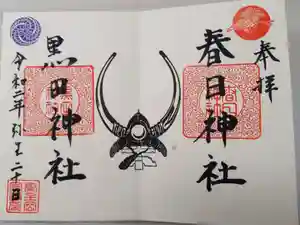 奉拝
春日神社
黒田神社
令和二年
二十日